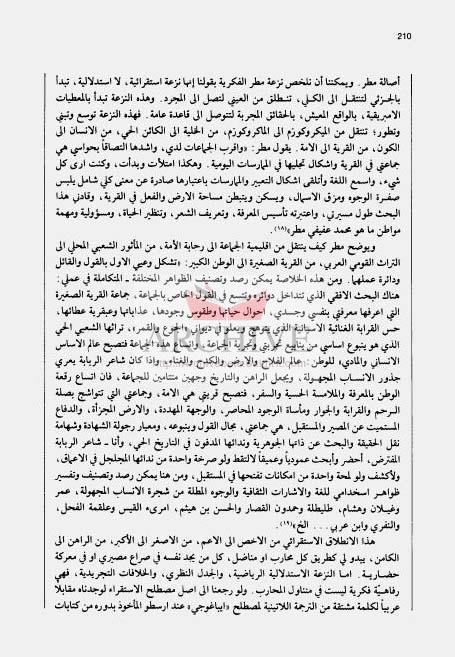 210
أصالة مطر. ويمكننا أن نلخص نزعة مطر الفكرية بقولنا إنها نزعة استقرائية، لا استدلالية، تبدأ
بالجزئي لتنتقل الى الكلي، تنطلق من العيني لتصل الى المجرد. وهذه النزعة تبدأ بالمعطيات
الامبريقية، بالواقع المعيش، بالحقائق المجربة لتتوصل الى قاعدة عامة. فهذه النزعة توسع وتبني
وتطور؛ تنتقل من الميكروكوزم الى الماكروكوزم، من الخلية الى الكائن الحي، من الانسان الى
الكون، من القرية الى الامة. يقول مطر: «واقرب الجماعات لدي، واشدها التصاقاً بحواسي هي
جماعتي في القرية واشكال تجليها في الممارسات اليومية. وهكذا امتلأت وبدأت، وكنت ارى كل
شيء، واسمع اللغة وأتلقى اشكال التعبير والممارسات باعتبارها صادرة عن معنى كلي شامل يلبس
صفرة الوجوه ومزق الاسمال، ويسكن ويتبطن مساحة الارض والفعل في القرية، وقادني هذا
البحث طول مسيرتي، واعتبرته تأسيس المعرفة، وتعريف الشعر، وتنظير الحياة، ومسؤولية ومهمة
مواطن ما هو محمد عفيفي مطر»(١٨).
ويوضح مطر كيف ينتقل من اقليمية الجماعة الى رحابة الأمة، من المأثور الشعبي المحلي الى
التراث القومي العربي، من القرية الصغيرة الى الوطن الكبير: «تشكل وعيي الاول بالقول والقائل
ودائرة عملهما. ومن هذه الخلاصة يمكن رصد وتصنيف الظواهر المختلفة ـ المتكاملة في عملي:
هناك البحث الافقي الذي تتداخل دوائره وتتسع في القول الخاص بالجماعة، جماعة القرية الصغيرة
التي اعرفها معرفتي بنفسي وجسدي، احوال حياتها وطقوس وجودها، عذاباتها وعبقرية عطائها،
حس القرابة الغنائية الانسانية الذي يتوهج ويعلو في ديوان «الجوع والقمر»، تراثها الشعبي الحي
الذي هو ينبوع اساسي من ينابيع عروبتي وعروبة الجماعة. واتساع هذه الجماعة فتصبح عالم الاساس
الانساني والمادي للوطن، عالم الفلاح والارض والكدح والغناء. واذا كان شاعر الربابة يعري
جذور الانساب المجهولة، ويجعل الراهن والتاريخ وجهين متنامين للجماعة، فان اتساع رقعة
الوطن بالمعرفة والملامسة الحسية والسفر، فتصبح قريتي هي الامة، وجماعتي التي تتواشج بصلة
الرحم والقرابة والجوار ومأساة الوجود المحاصر، والوجهة المهددة، والارض المجزأة، والدفاع
المستميت عن المصير والمستقبل، هي جماعتي، مجال القول وينبوعه، ومعيار رجولة الشهادة وشهامة
نقل الحقيقة والبحث عن ذاتها الجوهرية وندائها المدفون في التاريخ الحي، وأنا ـ شاعر الربابة
المفترض، أحضر وأبحث عمودياً وعميقاً لالتقط ولو صرخة واحدة من ندائها المجلجل في الاعماق،
ولأكشف ولو لمحة واحدة من امكانات تفتحها في المستقبل، ومن هنا يمكن رصد وتصنيف وتفسير
ظواهر استخدامي للغة والاشارات الثقافية والوجوه المطلة من شجرة الانساب المجهولة، عمر
وغيلان وهشام، طليطلة وحمدون القصار والحسن بن هيثم، امرىء القيس وعلقمة الفحل،
والنفري وابن عربي... الخ»(١٩).
هذا الانطلاق الاستقرائي من الاخص الى الاعم، من الاصغر الى الأكبر، من الراهن الى
الكامن، يبدو لي كطريق كل محارب او مناضل، كل من يجد نفسه في صراع مصيري او في معركة
حضارية. اما النزعة الاستدلالية الرياضية، والجدل النظري، والخلافات التجريدية، فهي
رفاهية فكرية ليست في متناول المحارب. ولو رجعنا الى اصل مصطلح الاستقراء لوجدناه مقابلاً
عربياً لكلمة مشتقة من الترجمة اللاتينية لمصطلح «ايباغوجي» عند ارسطو المأخوذ بدوره من كتابات